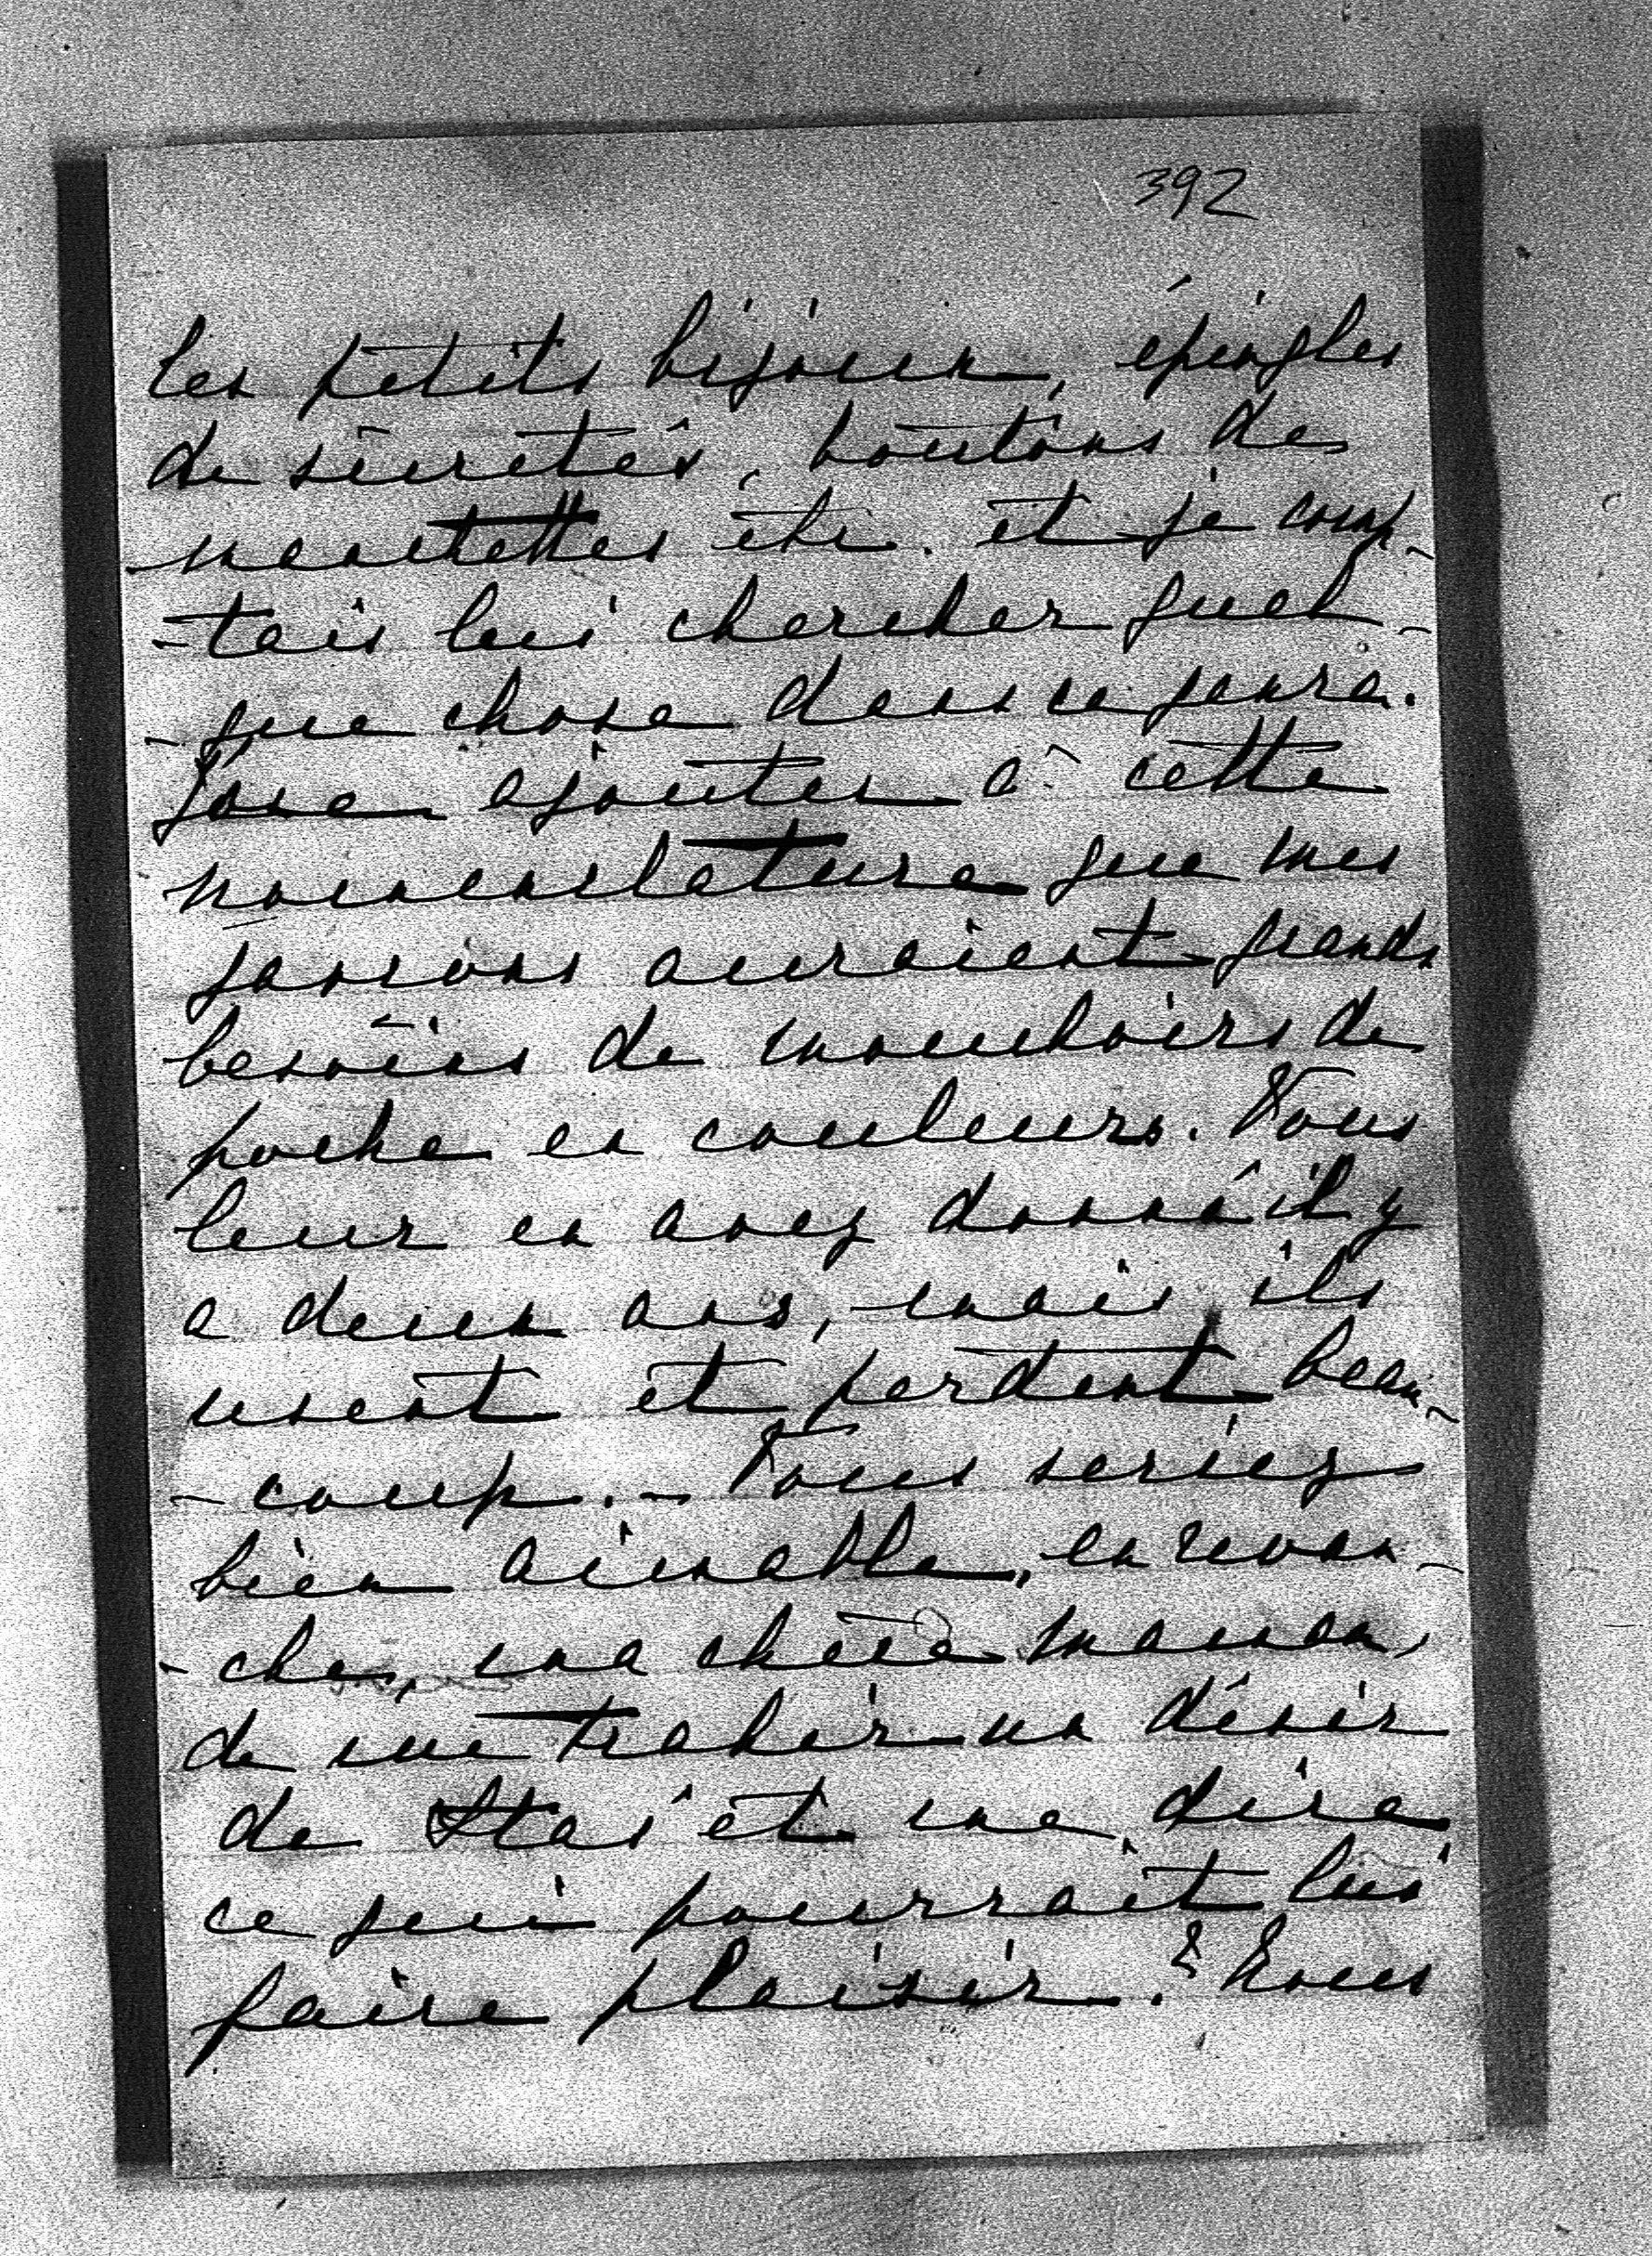 392
les petits bijoux, épingles
de sûretés, boutons de
manchettes etc. et je comp-
-tais lui chercher quel-
-que chose dans ce genre.
J'ose ajouter à cette
nomenclature que mes
garçons auraient grands
besoins de mouchoirs de
poche en couleurs. Vous
leur en avez donné il y
a deux ans, mais ils
usent et perdent beau-
-coup. - Vous seriez
bien aimable, en revan-
-che, ma chère maman,
de me trahir un désir
de et me dire
ce qui pourrait lui
faire plaisir. Nous